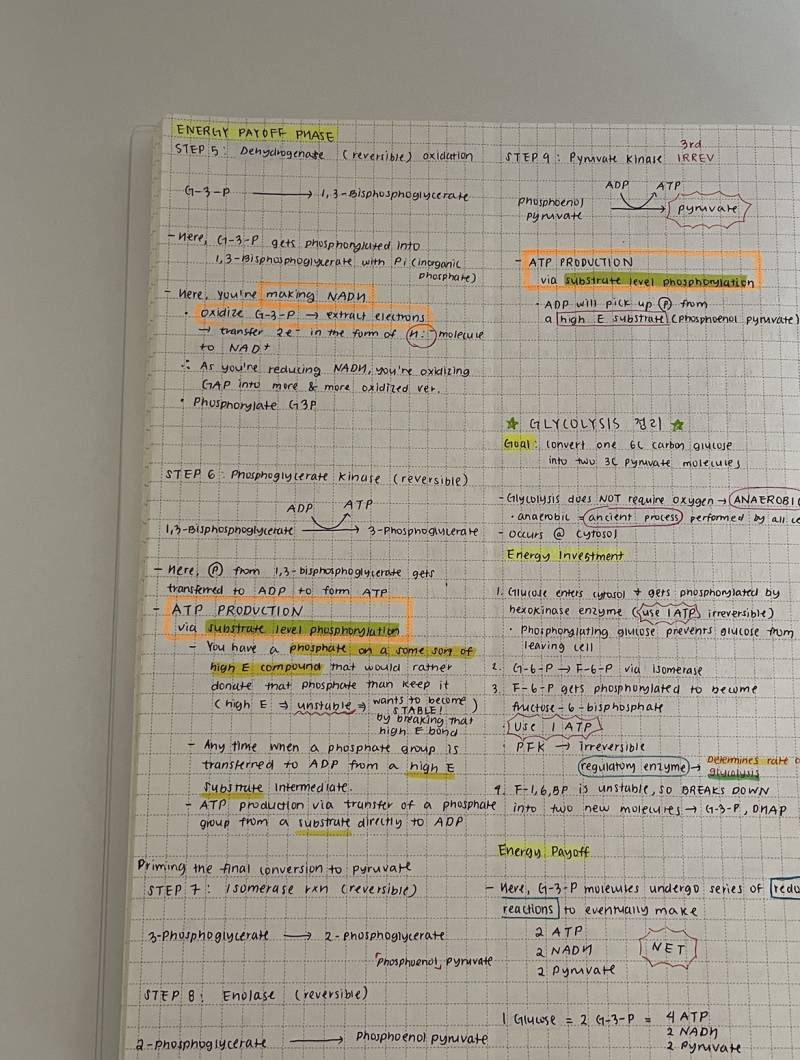 ENERGY PAYOFF PHASE
STEP 5: Dehydrogenate (reversible) oxidation
G-3-P → 1,3-Bisphosphoglycerate
- Here, G-3-P gets phosphorylated into
1,3-Bisphosphoglycerate with Pi (inorganic
phosphate)
- Here, you're making NADH
• oxidize G-3-P → extract electrons
→ transfer 2e- in the form of (H:-) molecule
to NAD+
∴ As you're reducing NADH, you're oxidizing
GAP into more & more oxidized ver.
• Phosphorylate G3P
STEP 6: Phosphoglycerate kinase (reversible)
ADP ATP
1,3-Bisphosphoglycerate → 3-Phosphoglycerate
- Here, Ⓟ from 1,3-bisphosphoglycerate gets
transferred to ADP to form ATP
- ATP PRODUCTION
via substrate level phosphorylation
- You have a phosphate on a some sort of
high E compound that would rather
donate that phosphate than keep it
(high E ⇒ unstable ⇒ wants to become
STABLE! )
by breaking that
high E bond
- Any time when a phosphate group is
transferred to ADP from a high E
substrate intermediate.
- ATP production via transfer of a phosphate
group from a substrate directly to ADP
Priming the final conversion to pyruvate
STEP 7: Isomerase rxn (reversible)
3-Phosphoglycerate → 2-Phosphoglycerate
Phosphoenol, Pyruvate
STEP 8: Enolase (reversible)
2-phosphoglycerate → Phosphoenol pyruvate
3rd
STEP 9: Pyruvate Kinase IRREV
ADP ATP
phosphoenol
pyruvate → pyruvate
- ATP PRODUCTION
via substrate level phosphorylation
• ADP will pick up Ⓟ from
a high E substrate (phosphoenol pyruvate)
★ GLYCOLYSIS 정리 ★
Goal: convert one 6C carbon glucose
into two 3C pyruvate molecules
- Glycolysis does NOT require oxygen → ANAEROBIC
• anaerobic = ancient process performed by all ce
- occurs @ cytosol
Energy Investment
1. Glucose enters cytosol + gets phosphorylated by
hexokinase enzyme (use 1 ATP, irreversible)
• Phosphorylating glucose prevents glucose from
leaving cell
2. G-6-P → F-6-P via isomerase
3. F-6-P gets phosphorylated to become
fructose-6-bisphosphate
• Use 1 ATP
• PFK → irreversible
regulatory enzyme → Determines rate o
glycolysis
4. F-1,6,BP is unstable, so BREAKS DOWN
into two new molecules → G-3-P, DHAP
Energy Payoff
- Here, G-3-P molecules undergo series of redo
reactions to eventually make
2 ATP
2 NADH NET
2 pyruvate
1 Glucose = 2 G-3-P = 4 ATP
2 NADH
2 Pyruvate